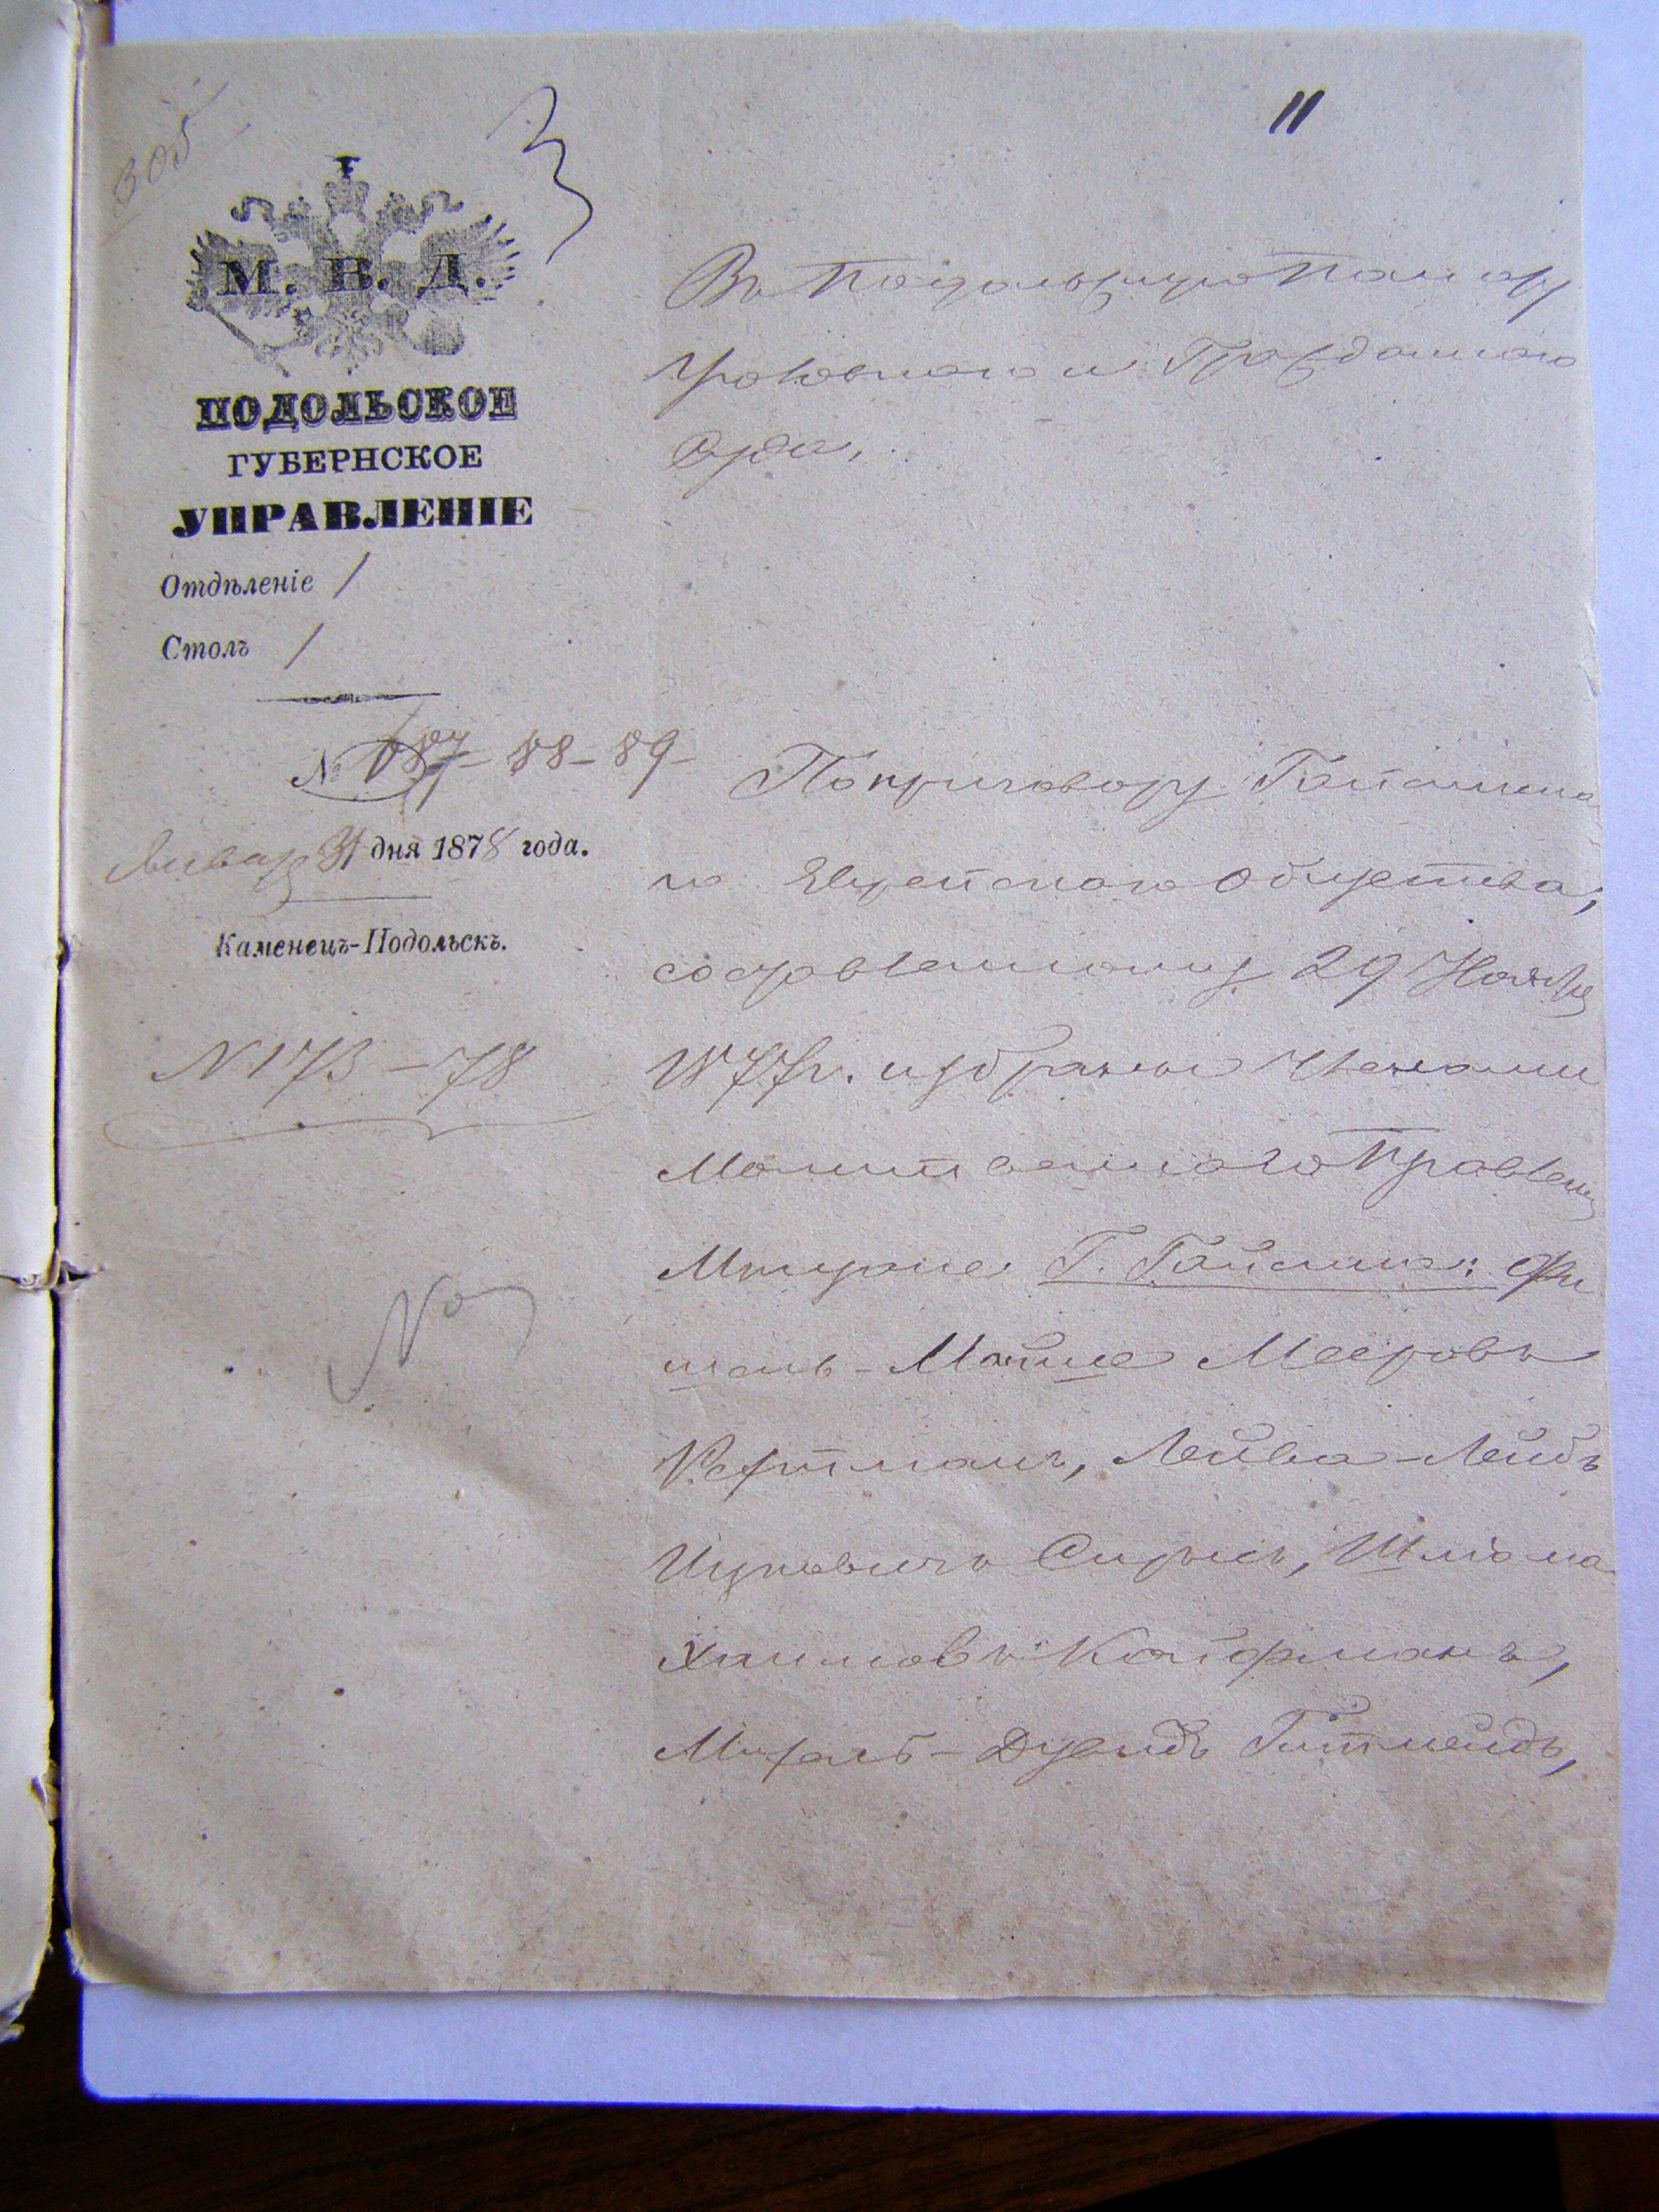 305
3
11
М. В. Д.
ПОДОЛЬСКОЕ
ГУБЕРНСКОЕ
УПРАВЛЕНІЕ
Отдѣленіе 1
Столъ 1
№ 187-88-89-
Января 31 дня 1878 года.
Каменецъ-Подольскъ.
N 173-78
Въ Подольскую Палату
Уголовнаго и Гражданскаго
Суда.
По приговору Гайсинска
го Еврейскаго Общества,
составленному 29 Ноября
1877 г. избраны Членами
Молитвеннаго Правленія
Г. Гайсина: Фи
шель-Мойше Мееровъ
Лейба-Лейбъ
Ицковичъ Шліома
Хаимовъ Койфманъ,
Дувидъ